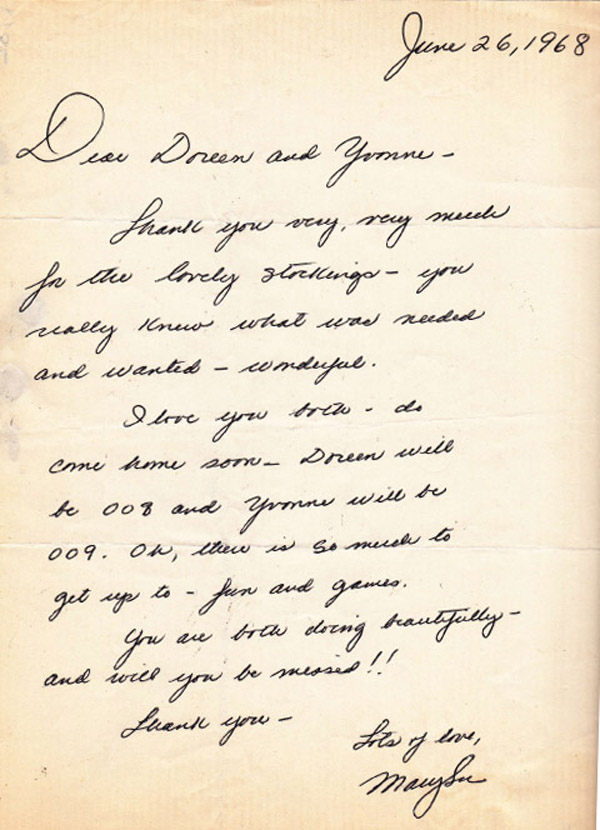 June 26, 1968
Dear Doreen and Yvonne -
Thank you very, very much
for the lovely stockings - you
really knew what was needed
and wanted - wonderful.
I love you both - do
come home soon - Doreen will
be 008 and Yvonne will be
009. Oh, there is so much to
get up to - fun and games.
You are both doing beautifully -
and will you be missed!!
Thank you -
Lots of love,
Mary Sue